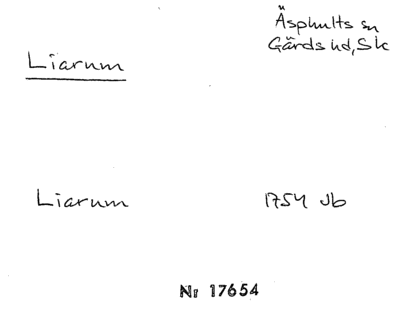 Äsphults sn
Gärds hd, Sk
Liarum
Liarum 1754 Jb
Nr 17654